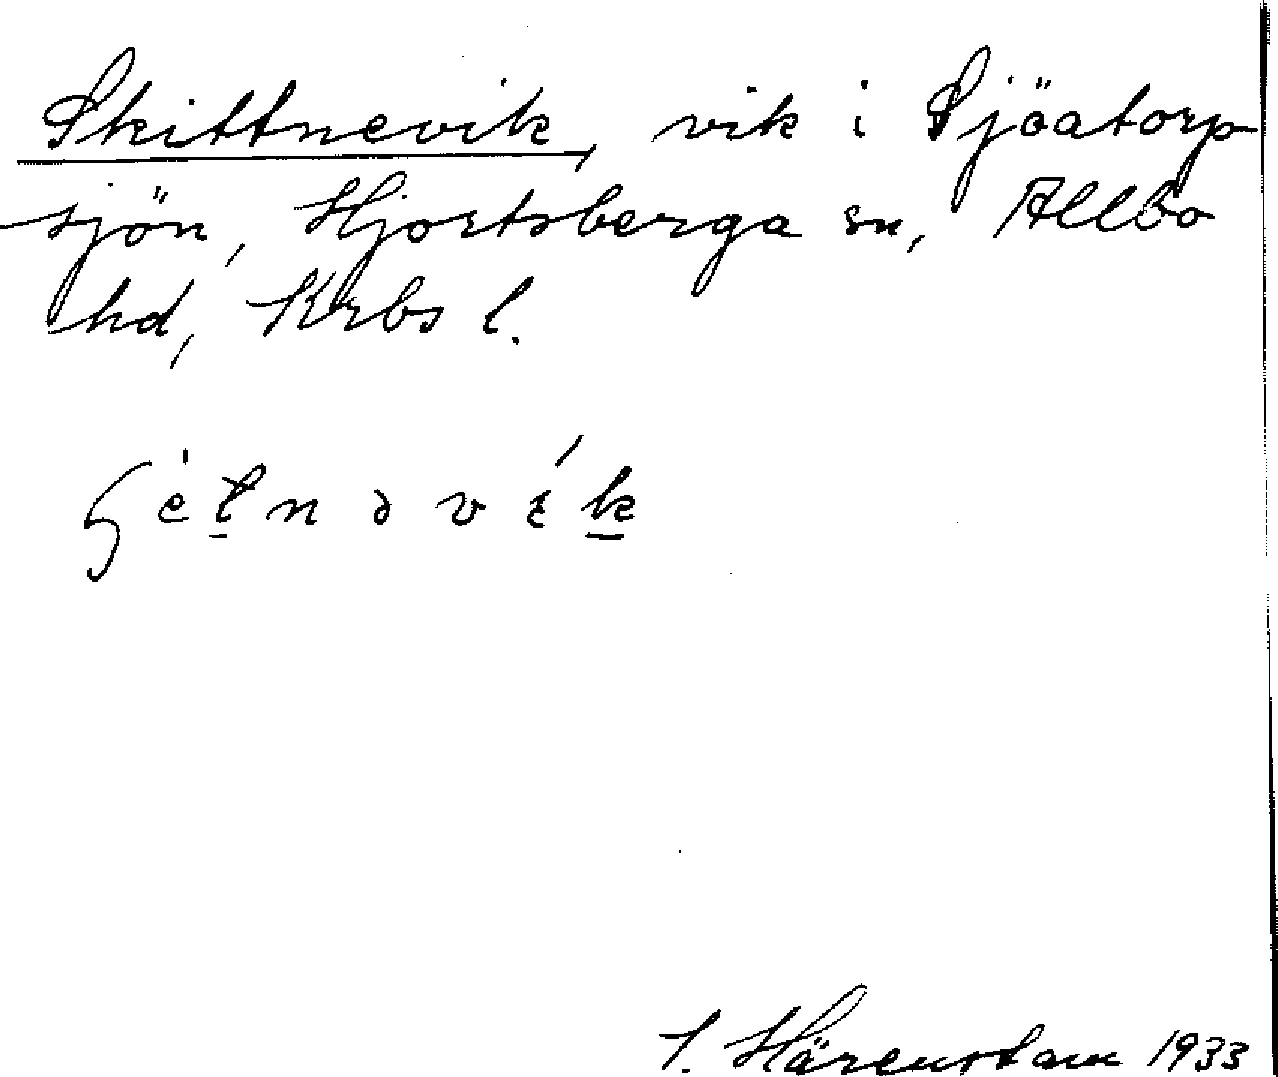 Skittnevik, vik i Sjöatorp-
sjön, Hjortsberga sn, Allbo
hd, Krbs l.
Härenstam 1933